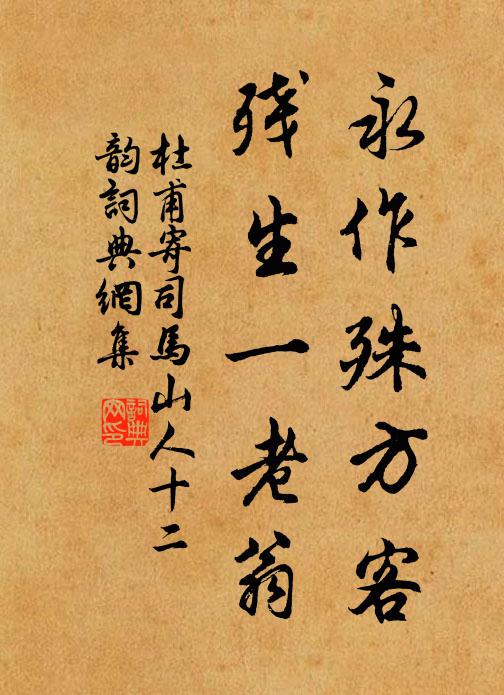 永作殊方客
残生一老翁
杜甫寄司馬山人十二
韵詞典網集
詞典
网印